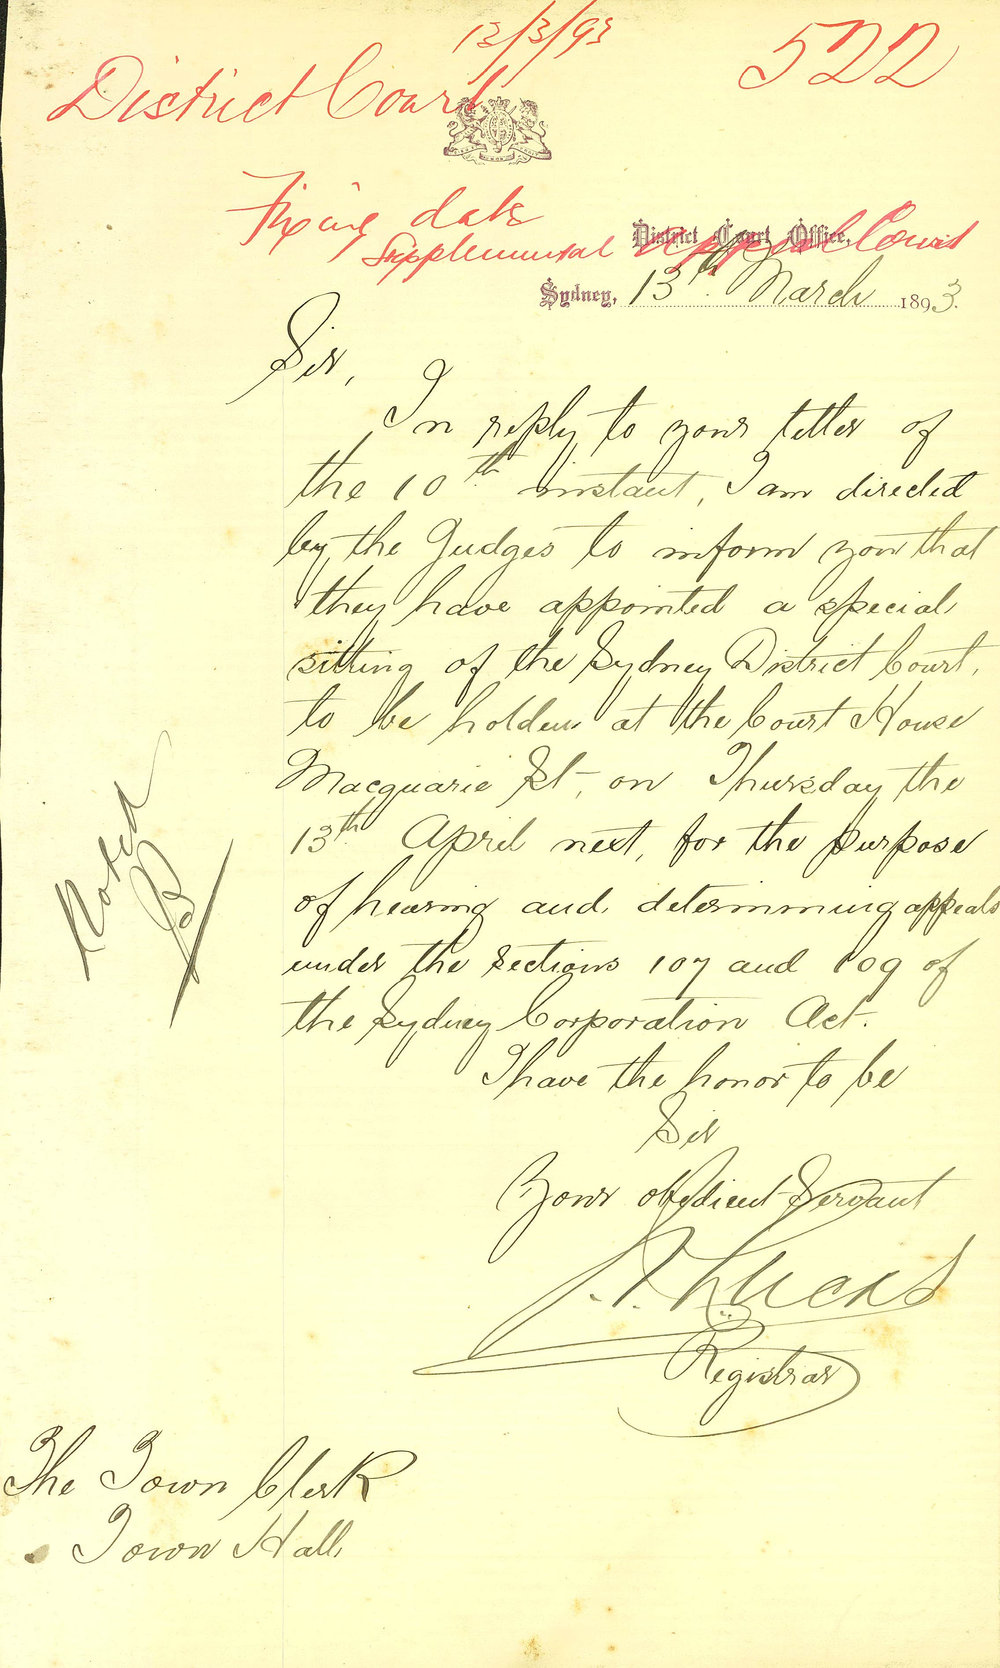 13/3/93
522
District Court
Fixing date
Supplemental Appeal Court
District Court Office,
Sydney, 13th March 1893.
Sir,
In reply to your letter of
the 10th instant, I am directed
by the Judges to inform you that
they have appointed a special
sitting of the Sydney District Court,
to be holden at the Court House
Macquarie St, on Thursday the
13th April next, for the purpose
of hearing and determining appeals
under the sections 107 and 109 of
the Sydney Corporation Act.
I have the honor to be
Sir
Your obedient Servant
Lucas
Registrar
Noted
The Town Clerk
Town Hall